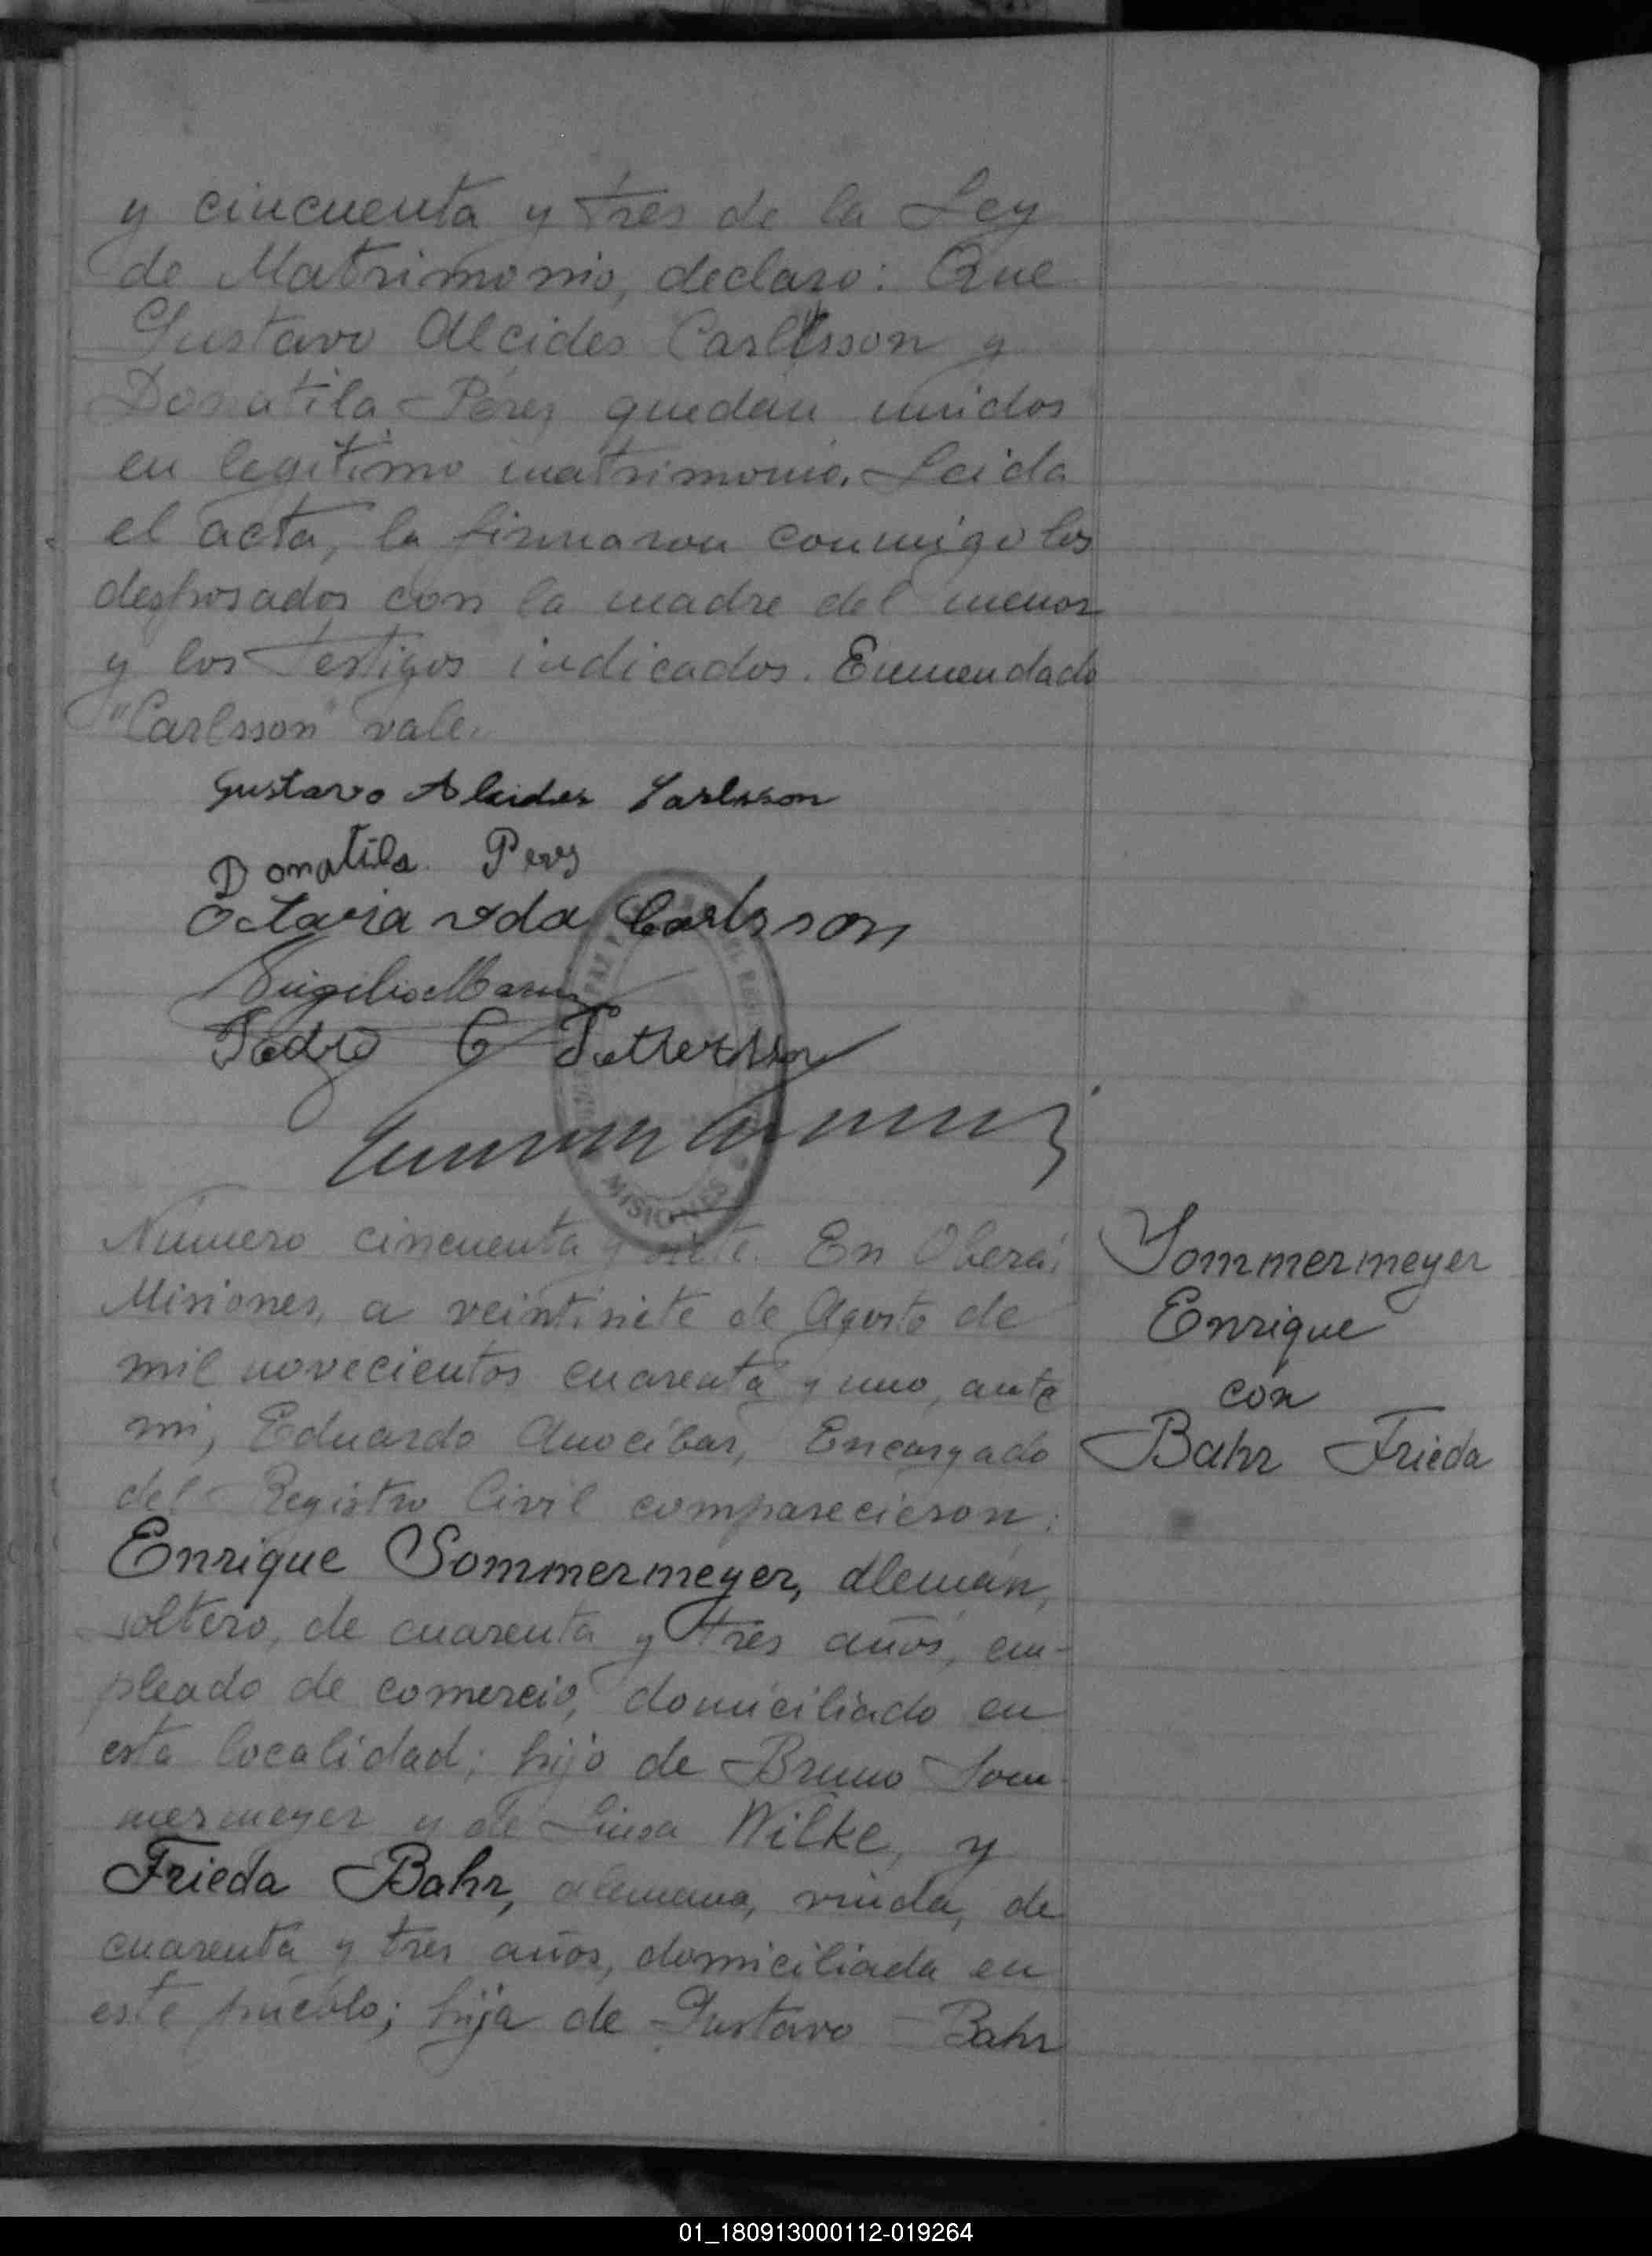 y cincuenta y tres de la Ley
de Matrimonio, declaro: Que
Gustavo Alcides Carlsson y
Donatila Pérez quedan unidos
en legítimo matrimonio. Leida
el acta, la firmaron conmigo los
desposados con la madre del menor
y los testigos indicados. Enmendado
"Carlsson" vale.
Gustavo Alcides Carlsson
Donatila Perez
Octavia vda Carlsson
Virgilio
Pedro C Pettersson
MISIONES
Número cincuenta y siete. En Oberá,
Misiones, a veintisiete de Agosto de
mil novecientos cuarenta y uno, ante
mi, Eduardo Anocíbar, Encargado
del Registro Civil comparecieron:
Enrique Sommermeyer, alemán,
soltero, de cuarenta y tres años, em-
pleado de comercio, domiciliado en
esta localidad; hijo de Bruno Som-
mermeyer y de Wilke, y
Frieda Bahr, alemana, viuda, de
cuarenta y tres años, domiciliada en
este pueblo; hija de Gustavo Bahr
Sommermeyer
Enrique
con
Bahr Frieda
01_180913000112-019264